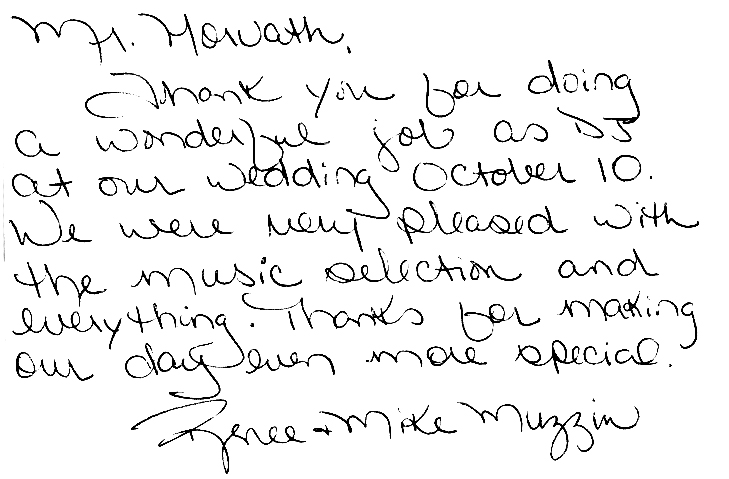 Mr. Horvath,
Thank you for doing
a wonderful job as DJ
at our wedding October 10.
We were very pleased with
the music selection and
everything. Thanks for making
our day even more special.
Renee + Mike Muzzin